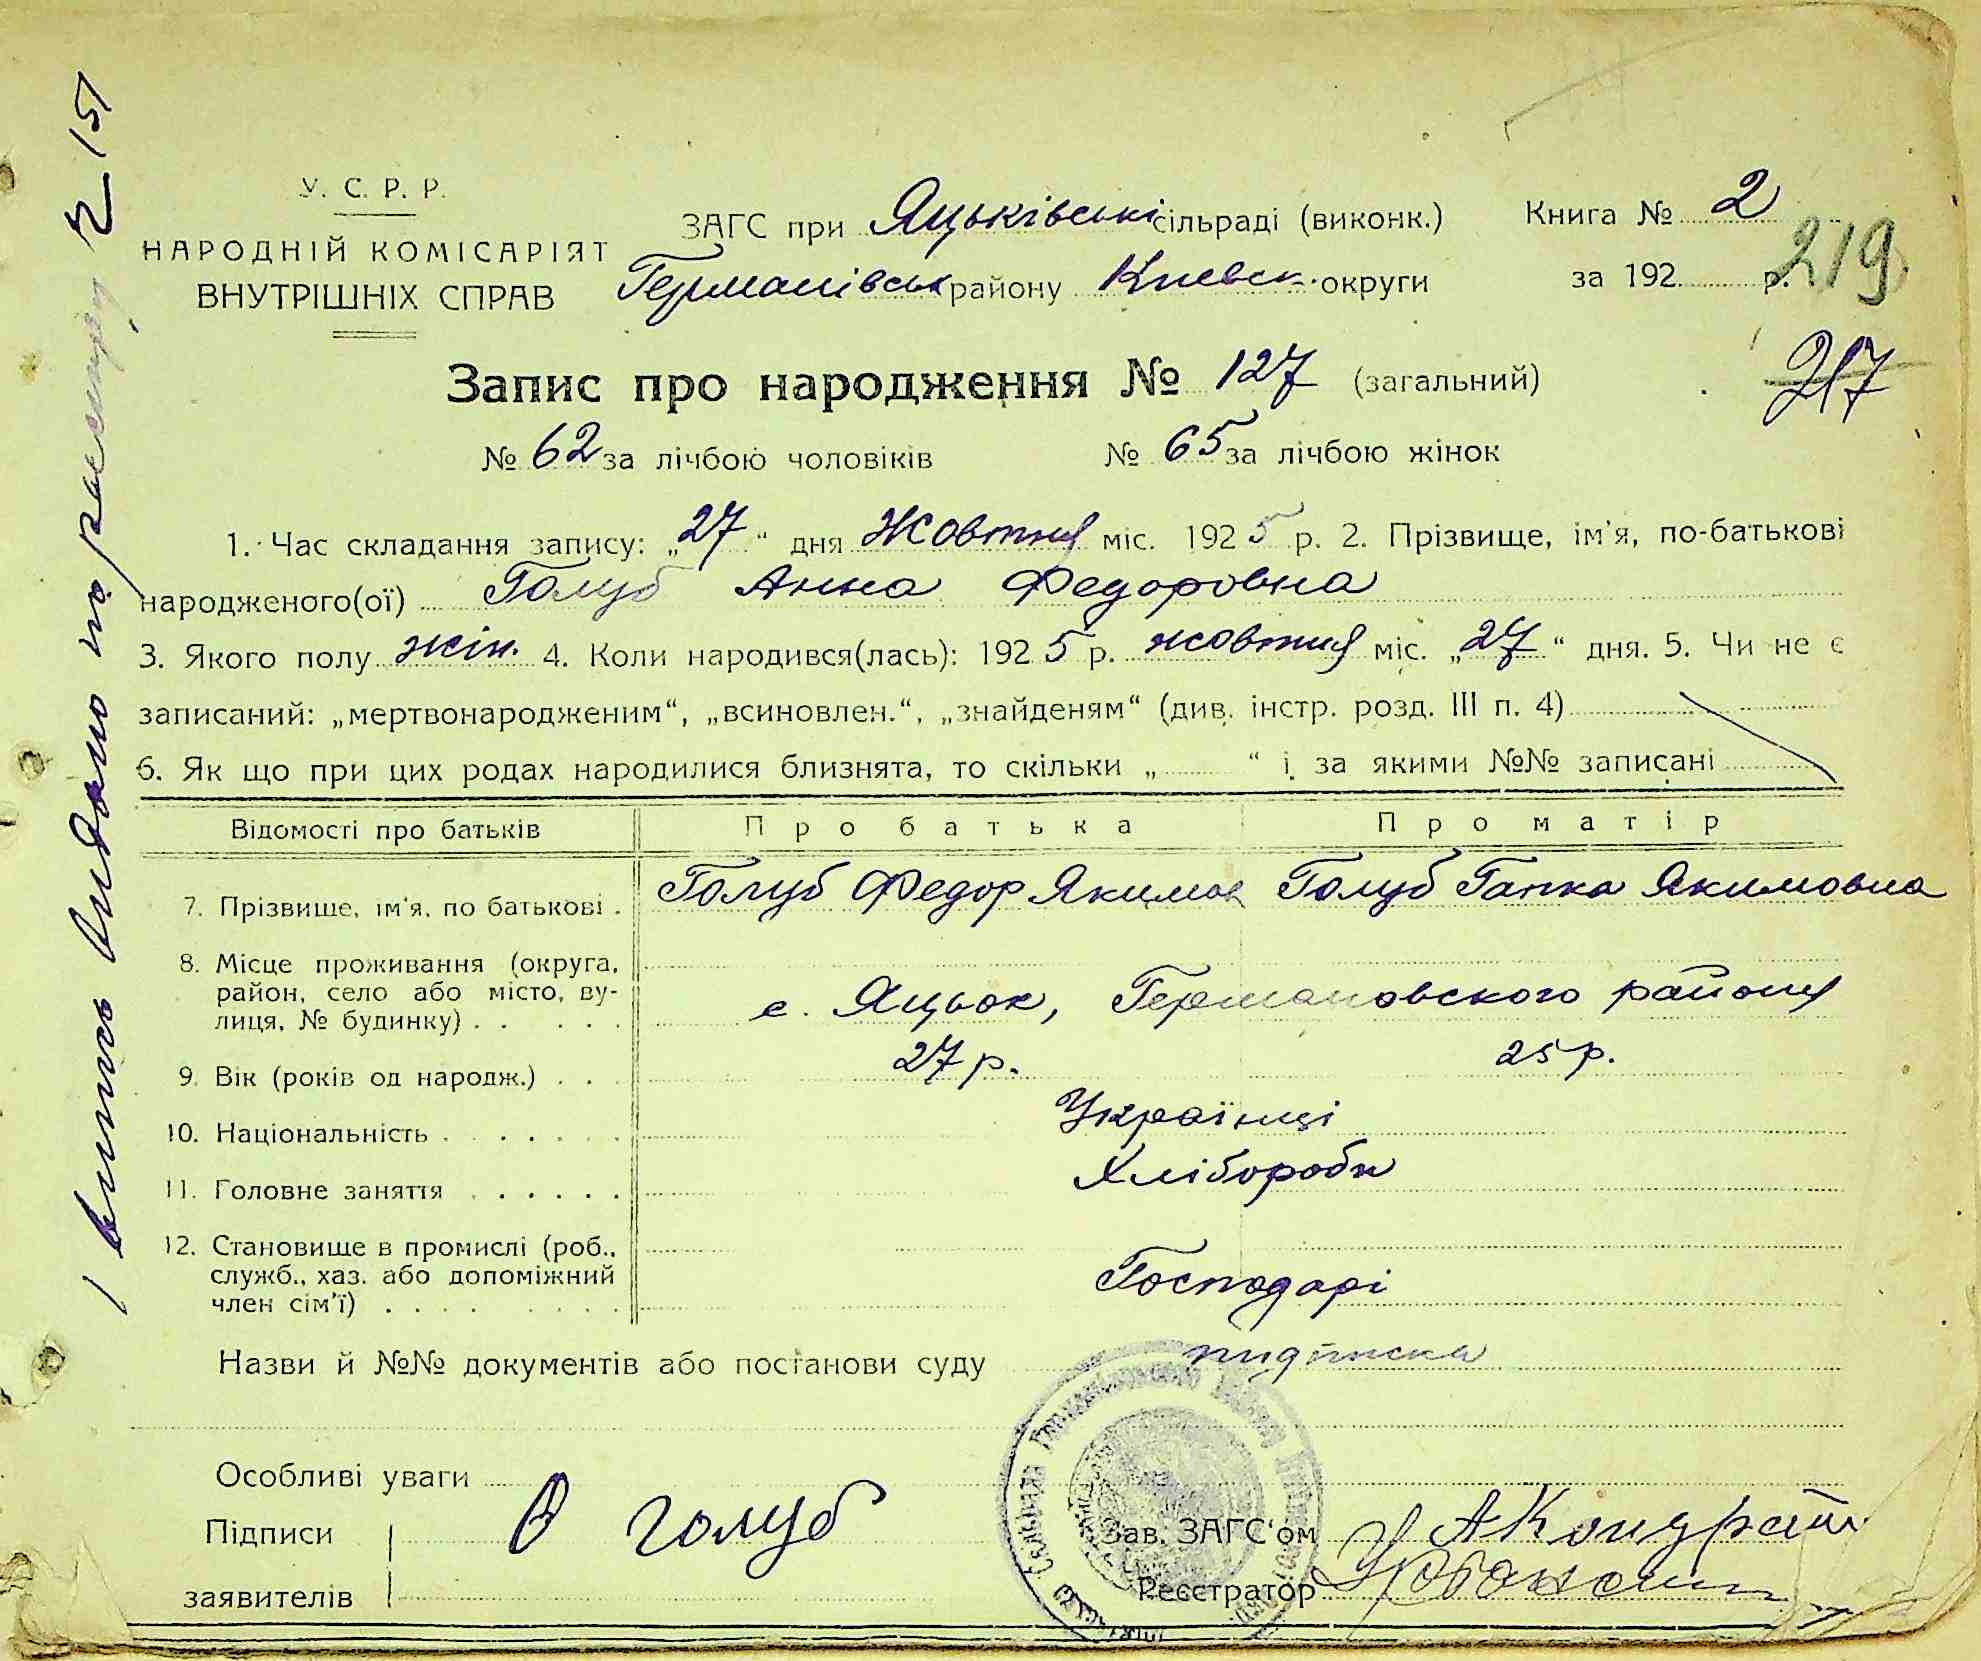 У. С. Р. Р.
НАРОДНІЙ КОМІСАРІЯТ
ВНУТРІШНІХ СПРАВ
ЗАГС при Яцьківські сільраді (виконк.)
Германівськ району Киевск. округи
Книга № 2
за 192 р.
219
217
Запис про народження № 127 (загальний)
№ 62 за лічбою чоловіків № 65 за лічбою жінок
1. Час складання запису: „27“ дня Жовтня міс. 1925 р. 2. Прізвище, ім'я, по-батькові
народженого(ої) Голуб Анна Федоровна
3. Якого полу жін. 4. Коли народився(лась): 1925 р. жовтня міс. „27“ дня. 5. Чи не є
записаний: „мертвонародженим“, „всиновлен.“, „знайденям“ (див. інстр. розд. III п. 4)
6. Як що при цих родах народилися близнята, то скільки „ “ і за якими №№ записані
Відомості про батьків Про батька Про матір
7. Прізвише, ім'я, по батькові . Голуб Федор Якимов Голуб Гапка Якимовна
8. Місце проживання (округа,
район, село або місто, ву-
лиця, № будинку) . . . . . с. Яцьок, Германовского района
9. Вік (років од народж.) . . . 27 р. 25 р.
10. Національність . . . . . . . Українці
11. Головне заняття . . . . . . Хлібороби
12. Становище в промислі (роб.,
служб., хаз. або допоміжний
член сім'ї) . . . . . . . . Господарі
Назви й №№ документів або постанови суду підписка
Особливі уваги
Підписи
заявителів
голуб
Зав. ЗАГС'ом
Реєстратор
1 випись видано по